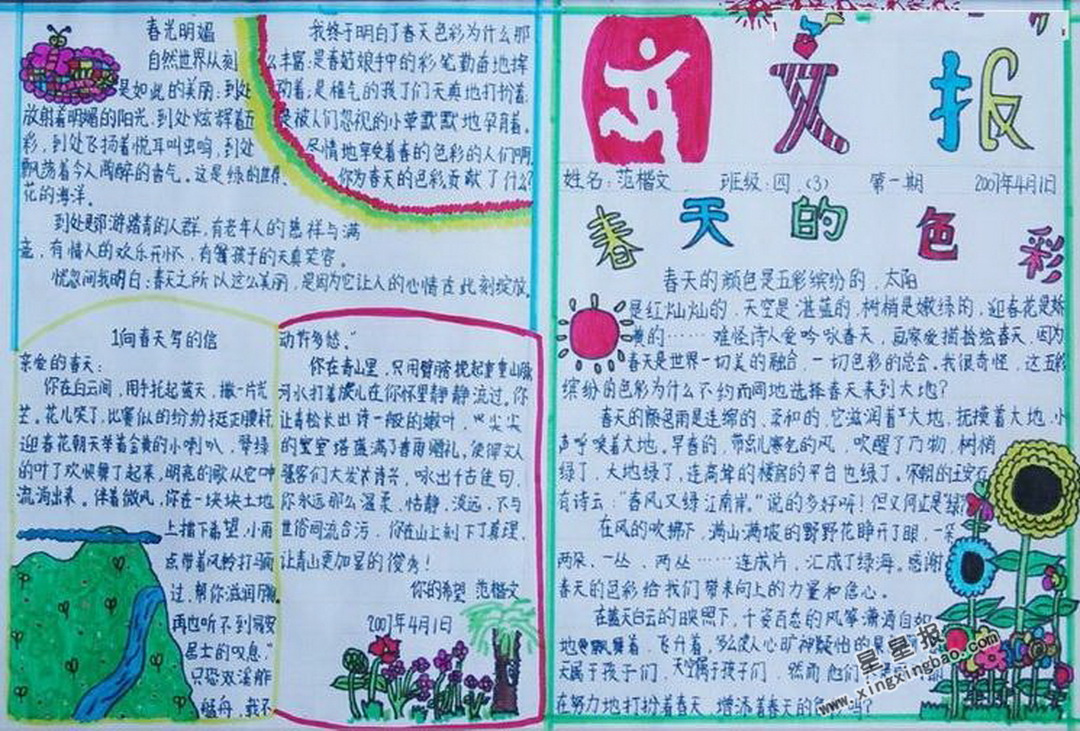 春光明媚
自然世界从刻
是如此的美丽:到处
放射着明媚的阳光,到处炫辉着五
彩,到处飞扬着悦耳叫虫鸣,到处
飘荡着令人陶醉的香气。这是绿的世界、
花的海洋。
到处是郊游踏青的人群,有老年人的慈祥与满
意,有情人的欢乐开怀,有孩子的天真笑容。
恍忽间我明白:春天之所以这么美丽,是因为它让人的心情在此刻绽放。
我终于明白了春天色彩为什么那
么丰富:是春姑娘手中的彩笔勤奋地挥
动着;是稚气的孩子们天真地打扮着;
是被人们忽视的小草默默地孕育着。
尽情地享受着春的色彩的人们啊,
你为春天的色彩贡献了什么?
向春天写的信
亲爱的春天:
你在白云间,用手托起蓝天,撒一片光
芒。花儿笑了,比赛似的纷纷挺正腰杆,
迎春花朝天举着金黄的小喇叭,翠绿
的叶子欢快舞了起来,明亮的歌从它口中
流淌出来。伴着微风,你在一块块土地
上播下希望,小雨
点带着风铃打马而
过,帮你滋润万物,
再也听不到易安
居士的叹息:“
只恐双溪舴
艋舟,载不
动许多愁。”
你在青山里,只用臂膀揽起重重山脉,
河水打着旋儿在你怀里静静流过。你
让青松长出诗一般的嫩叶,尖尖
的宝塔盛满了春雨赠礼,使得文人
骚客们大发其诗兴,咏出千古佳句,
你永远那么温柔、恬静、浪远、不与
世俗同流合污,你在山上刻下了真理,
让青山更加显的俊秀!
你的希望 范楷文
2007年4月1日
语文报
姓名:范楷文 班级:四.(3) 第一期 2007年4月1日
春天的色彩
春天的颜色是五彩缤纷的,太阳
是红灿灿的,天空是湛蓝的,树梢是嫩绿的,迎春花是
黄的……难怪诗人爱吟咏春天,画家爱描绘春天,因为
春天是世界一切美的融合,一切色彩的总会。我很奇怪,这五彩
缤纷的色彩为什么不约而同地选择春天来到大地?
春天的颜色雨是连绵的、柔和的,它滋润着大地,抚摸着大地,小
声呼唤着大地。早春的,带点儿寒色的风,吹醒了万物,树梢
绿了,大地绿了,连高耸的楼房的平台也绿了。宋朝的王安石
有诗云:“春风又绿江南岸。”说的多好呀!但又何止是绿
在风的吹拂下,满山满坡的野野花睁开了眼,一朵、
两朵、一丛、两丛……连成片,汇成了绿海。感谢
春天的色彩给我们带来向上的力量和信心。
在蓝天白云的映照下,千姿百态的风筝潇洒自如
地飘舞着,飞升着,多么使人心旷神疑怡的景
天属于孩子们,天空属于孩子们,然而他们
在努力地打扮着春天,增添着春天的色彩吗?
星星报
www.xingxingbao.com